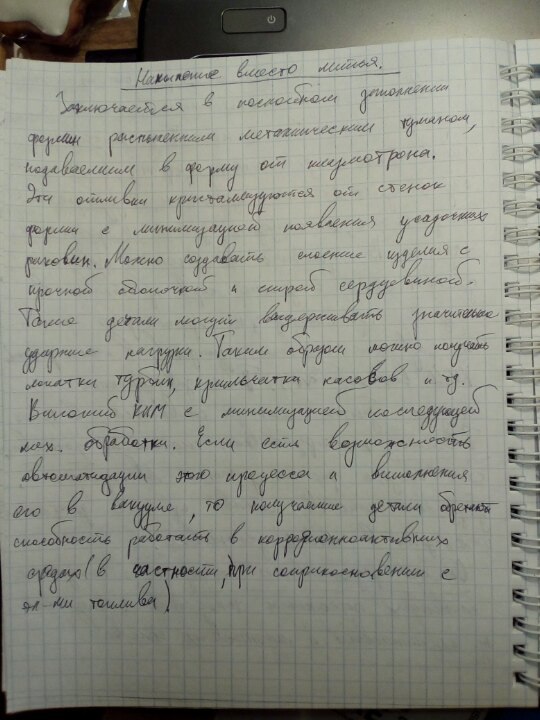 Напыление вместо литья.
Заключается в послойном заполнении
формы распыленным металлическим туманом,
подаваемым в форму от плазмотрона.
Эти отливки кристализуются от стенок
формы с минимизацией появления усадочных
раковин. Можно создавать слоеные изделия с
прочной оболочкой и сердцевиной.
Такие детали могут выдерживать значительные
ударные нагрузки. Таким образом можно получать
лопатки турбин, крыльчатки насосов и тд.
Высокий КИМ с минимизацией последующей
мех. обработки. Если есть возможность
автоматизации этого процесса и выполнения
его в вакууме, то получаемые детали обретают
способность работать в коррозионноактивных
средах (в частности, при соприкосновении с
эл-ми топлива)